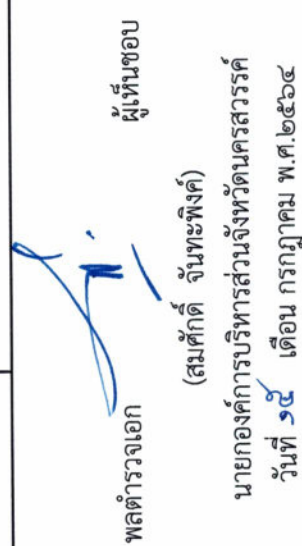 พลตำรวจเอก ผู้เห็นชอบ
(สมศักดิ์ จันทะพิงค์)
นายกองค์การบริหารส่วนจังหวัดนครสวรรค์
วันที่ ๑๕ เดือน กรกฎาคม พ.ศ.๒๕๖๔